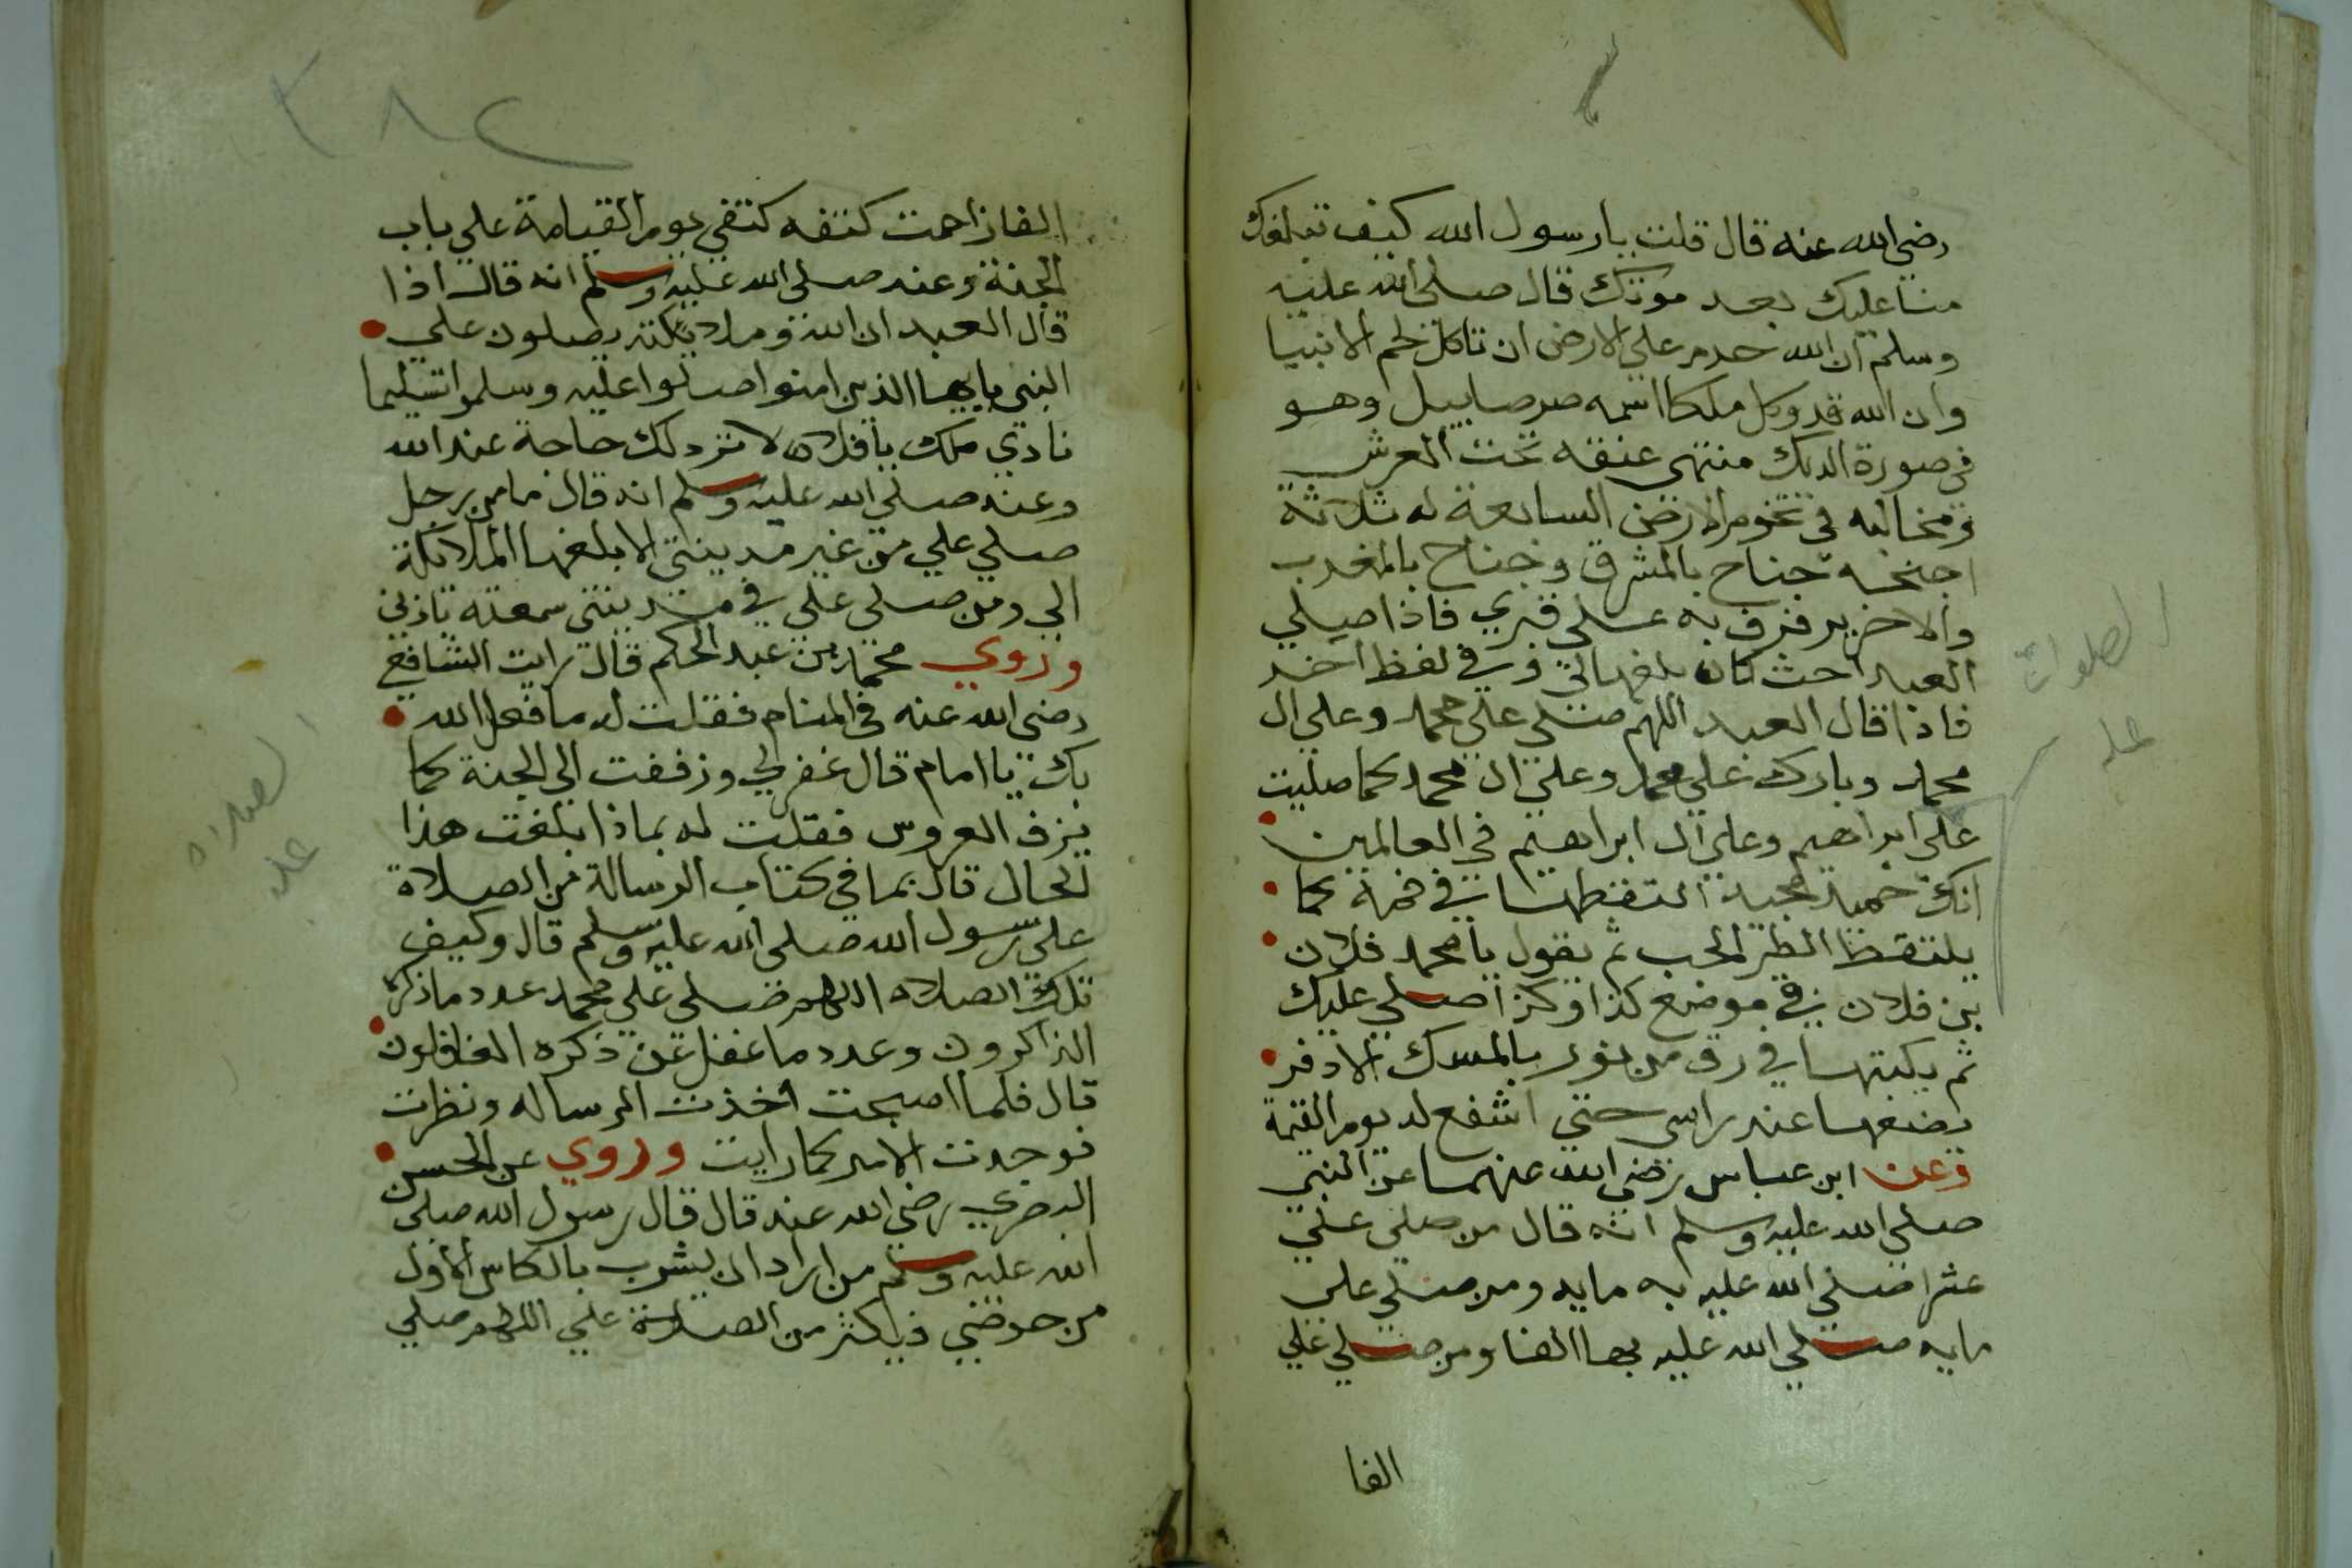 رضي الله عنه قال قلت يا رسول الله كيف تبلغك
منا عليك بعد موتك قال صلى الله عليه
وسلم ان الله حرم على الارض ان تاكل لحم الانبيا
وان الله قد وكل ملكا اسمه صرصاييل وهو
في صورة الديك منتهى عنقه تحت العرش
ومخالبه في تخوم الارض السابعة له ثلاثة
اجنحه جناح بالمشرق وجناح بالمغرب
والاخر يرفرف به على قبري فاذا صلي
العبد احث كان بلغهالي وفي لفظ اخر
فاذا قال العبد اللهم صلي علي محمد وعلي ال
محمد وبارك علي محمد وعلي ال محمد كما صليت
علي ابراهيم وعلي ال ابراهيم في العالمين
انك حميد مجيد التقطها في فمه كما
يلتقط الطير الحب ثم يقول يا محمد فلان
بن فلان في موضع كذا وكذا صلي عليك
ثم يكتبها في رق من نور بالمسك الادفر
يضعها عند راسي حتي اشفع له يوم القيمة
وعن ابن عباس رضي الله عنهما عن النبي
صلي الله عليه وسلم انه قال من صلي علي
عشرا صلي الله عليه به مايه ومن صلي علي
مايه صلي الله عليه بها الفا ومن صلي علي
الفا
الصلوات
عليه
٣٨٢
الفا زاحمت كتفه كتفي يوم القيامة علي باب
الجنة وعنه صلي الله عليه وسلم انه قال اذا
قال العبد ان الله وملايكته يصلون علي
النبي يايها الذين امنوا صلوا عليه وسلموا تسليما
نادي ملك يا فلان لا ترد لك حاجة عند الله
وعنه صلي الله عليه وسلم انه قال ما من رجل
صلي علي من غير مدينتي الا بلغها الملائكة
الي ومن صلي علي في مدينتي سمعته باذني
وروي محمد بن عبد الحكم قال رايت الشافعي
رضي الله عنه في المنام فقلت له ما فعل الله
بك يا امام قال غفر لي وزففت الي الجنة كما
يزف العروس فقلت له بماذا بلغت هذا
الحال قال بما في كتاب الرسالة من الصلاة
علي رسول الله صلي الله عليه وسلم قال وكيف
تلك الصلاه اللهم صلي علي محمد عدد ما ذكره
الذاكرون وعدد ما غفل عن ذكره الغافلون
قال فلما اصبحت اخذت الرساله ونظرت
فوجدت الامر كما رايت وروي عن الحسن
البصري رضي الله عنه قال قال رسول الله صلي
الله عليه وسلم من اراد ان يشرب بالكاس الاول
من حوضي فليكثر من الصلاة علي اللهم صلي
الصلاه
عليه